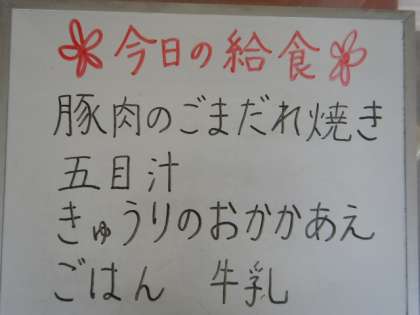 今日の給食
豚肉のごまだれ焼き
五目汁
きゅうりのおかかあえ
ごはん　牛乳